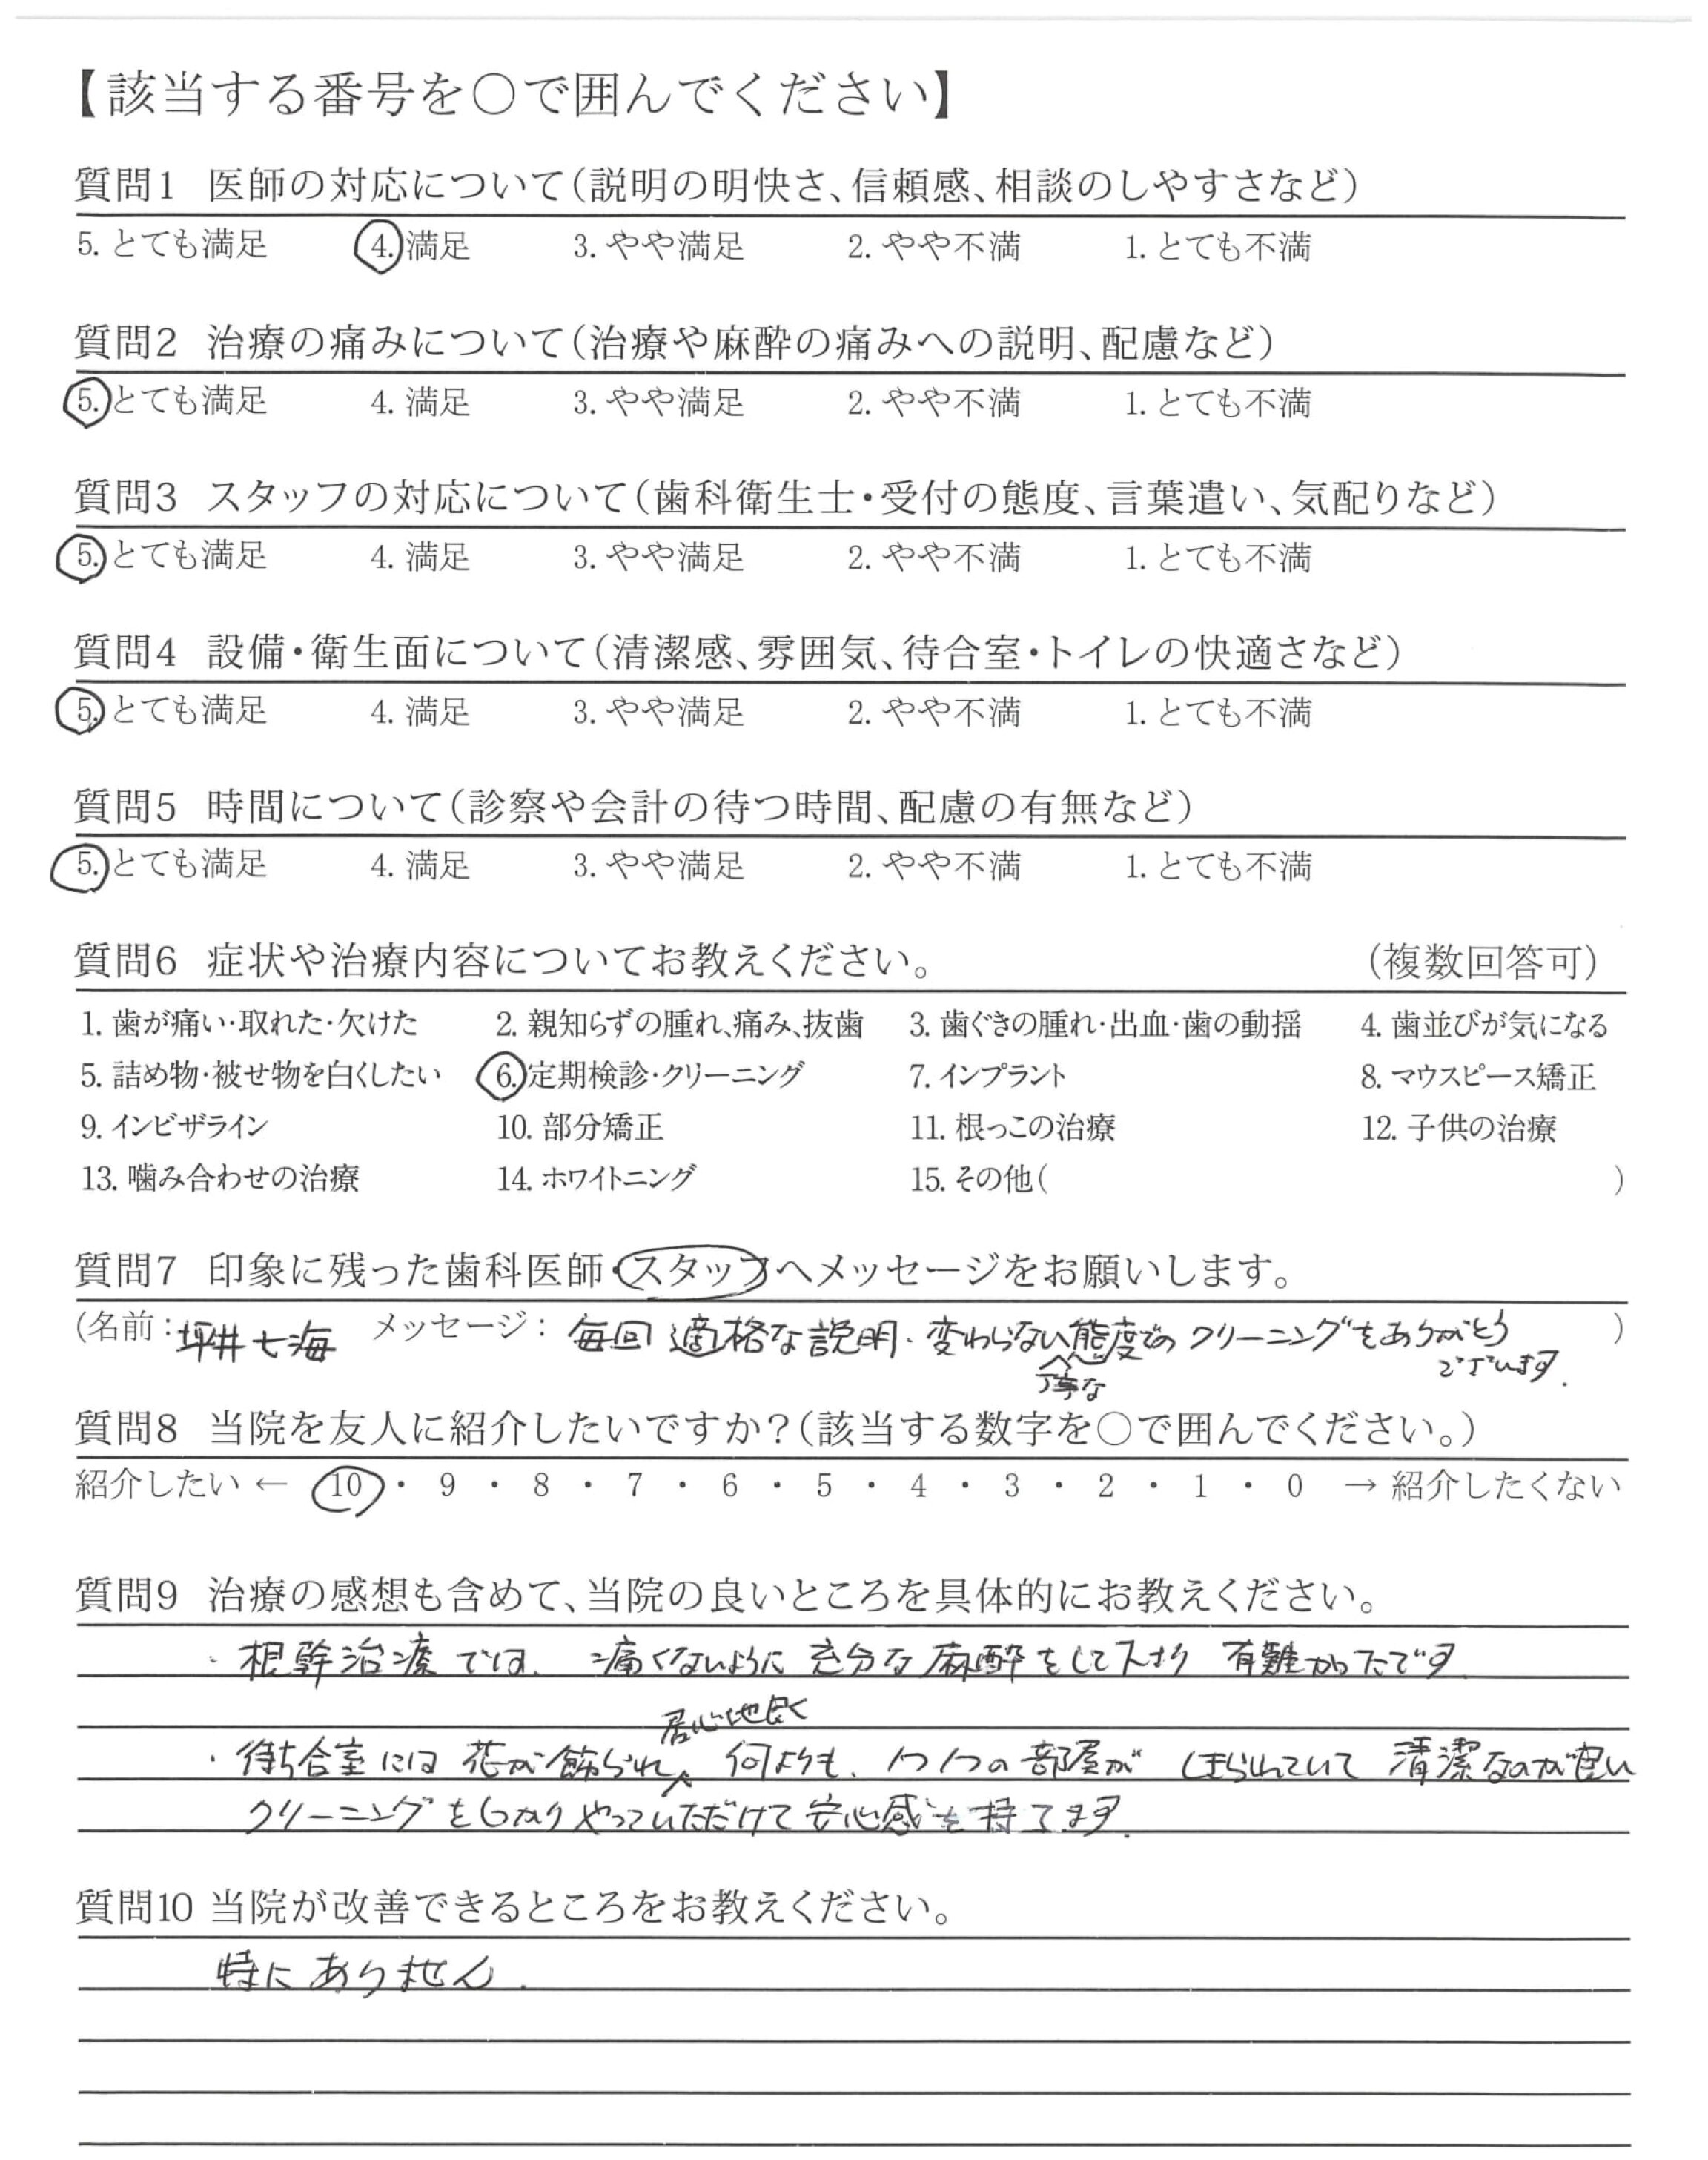 【該当する番号を○で囲んでください】
質問1 医師の対応について(説明の明快さ、信頼感、相談のしやすさなど)
5. とても満足 4. 満足 3. やや満足 2. やや不満 1. とても不満
質問2 治療の痛みについて(治療や麻酔の痛みへの説明、配慮など)
5. とても満足 4. 満足 3. やや満足 2. やや不満 1. とても不満
質問3 スタッフの対応について(歯科衛生士・受付の態度、言葉遣い、気配りなど)
5. とても満足 4. 満足 3. やや満足 2. やや不満 1. とても不満
質問4 設備・衛生面について(清潔感、雰囲気、待合室・トイレの快適さなど)
5. とても満足 4. 満足 3. やや満足 2. やや不満 1. とても不満
質問5 時間について(診察や会計の待つ時間、配慮の有無など)
5. とても満足 4. 満足 3. やや満足 2. やや不満 1. とても不満
質問6 症状や治療内容についてお教えください。 (複数回答可)
1. 歯が痛い・取れた・欠けた 2. 親知らずの腫れ、痛み、抜歯 3. 歯ぐきの腫れ・出血・歯の動揺 4. 歯並びが気になる
5. 詰め物・被せ物を白くしたい 6. 定期検診・クリーニング 7. インプラント 8. マウスピース矯正
9. インビザライン 10. 部分矯正 11. 根っこの治療 12. 子供の治療
13. 噛み合わせの治療 14. ホワイトニング 15. その他( )
質問7 印象に残った歯科医師・スタッフへメッセージをお願いします。
(名前: 坪井七海 メッセージ: 毎回適格な説明、変わらない丁寧な態度でのクリーニングをありがとう )
ございます.
質問8 当院を友人に紹介したいですか?(該当する数字を○で囲んでください。)
紹介したい ← 10 ・ 9 ・ 8 ・ 7 ・ 6 ・ 5 ・ 4 ・ 3 ・ 2 ・ 1 ・ 0 → 紹介したくない
質問9 治療の感想も含めて、当院の良いところを具体的にお教えください。
・根幹治療では、痛くないように充分な麻酔をして下さり 有難かったです
・待ち合室には 花が飾られ居心地良く 何よりも、1つ1つの部屋が しきられていて 清潔なのが良い
クリーニングをしっかりやっていただけて安心感を持てます.
質問10 当院が改善できるところをお教えください。
特にありません.